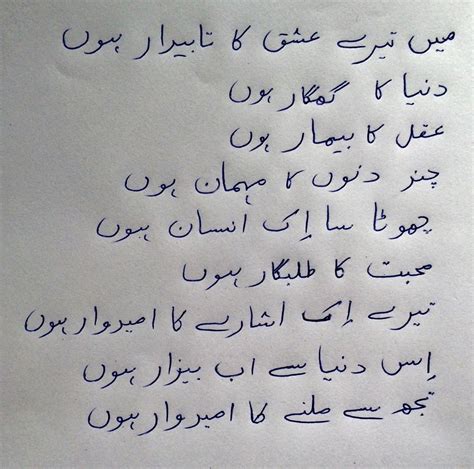 میں تیرے عشق کا تابیدار ہوں
دنیا کا گمگار ہوں
عقل کا بیمار ہوں
چند دنوں کا مہمان ہوں
چھوٹا سا اِک انسان ہوں
محبت کا طلبگار ہوں
تیرے اِک اشارے کا امیدوار ہوں
اِس دنیا سے اب بیزار ہوں
تجھ سے ملنے کا امیدوار ہوں